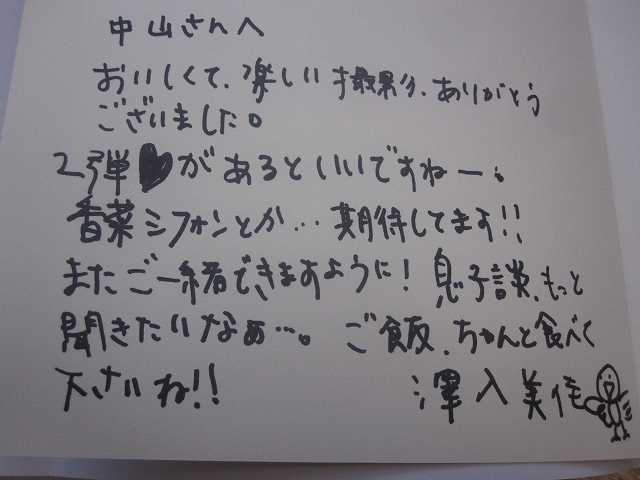 中山さんへ
おいしくて、楽しい撮影、ありがとう
ございました。
2弾♥があるといいですねー。
香菜シフォンとか…期待してます!!
またご一緒できますように! 息子談、もっと
聞きたいなぁ…。ご飯、ちゃんと食べて
下さいね!! 澤入美佳